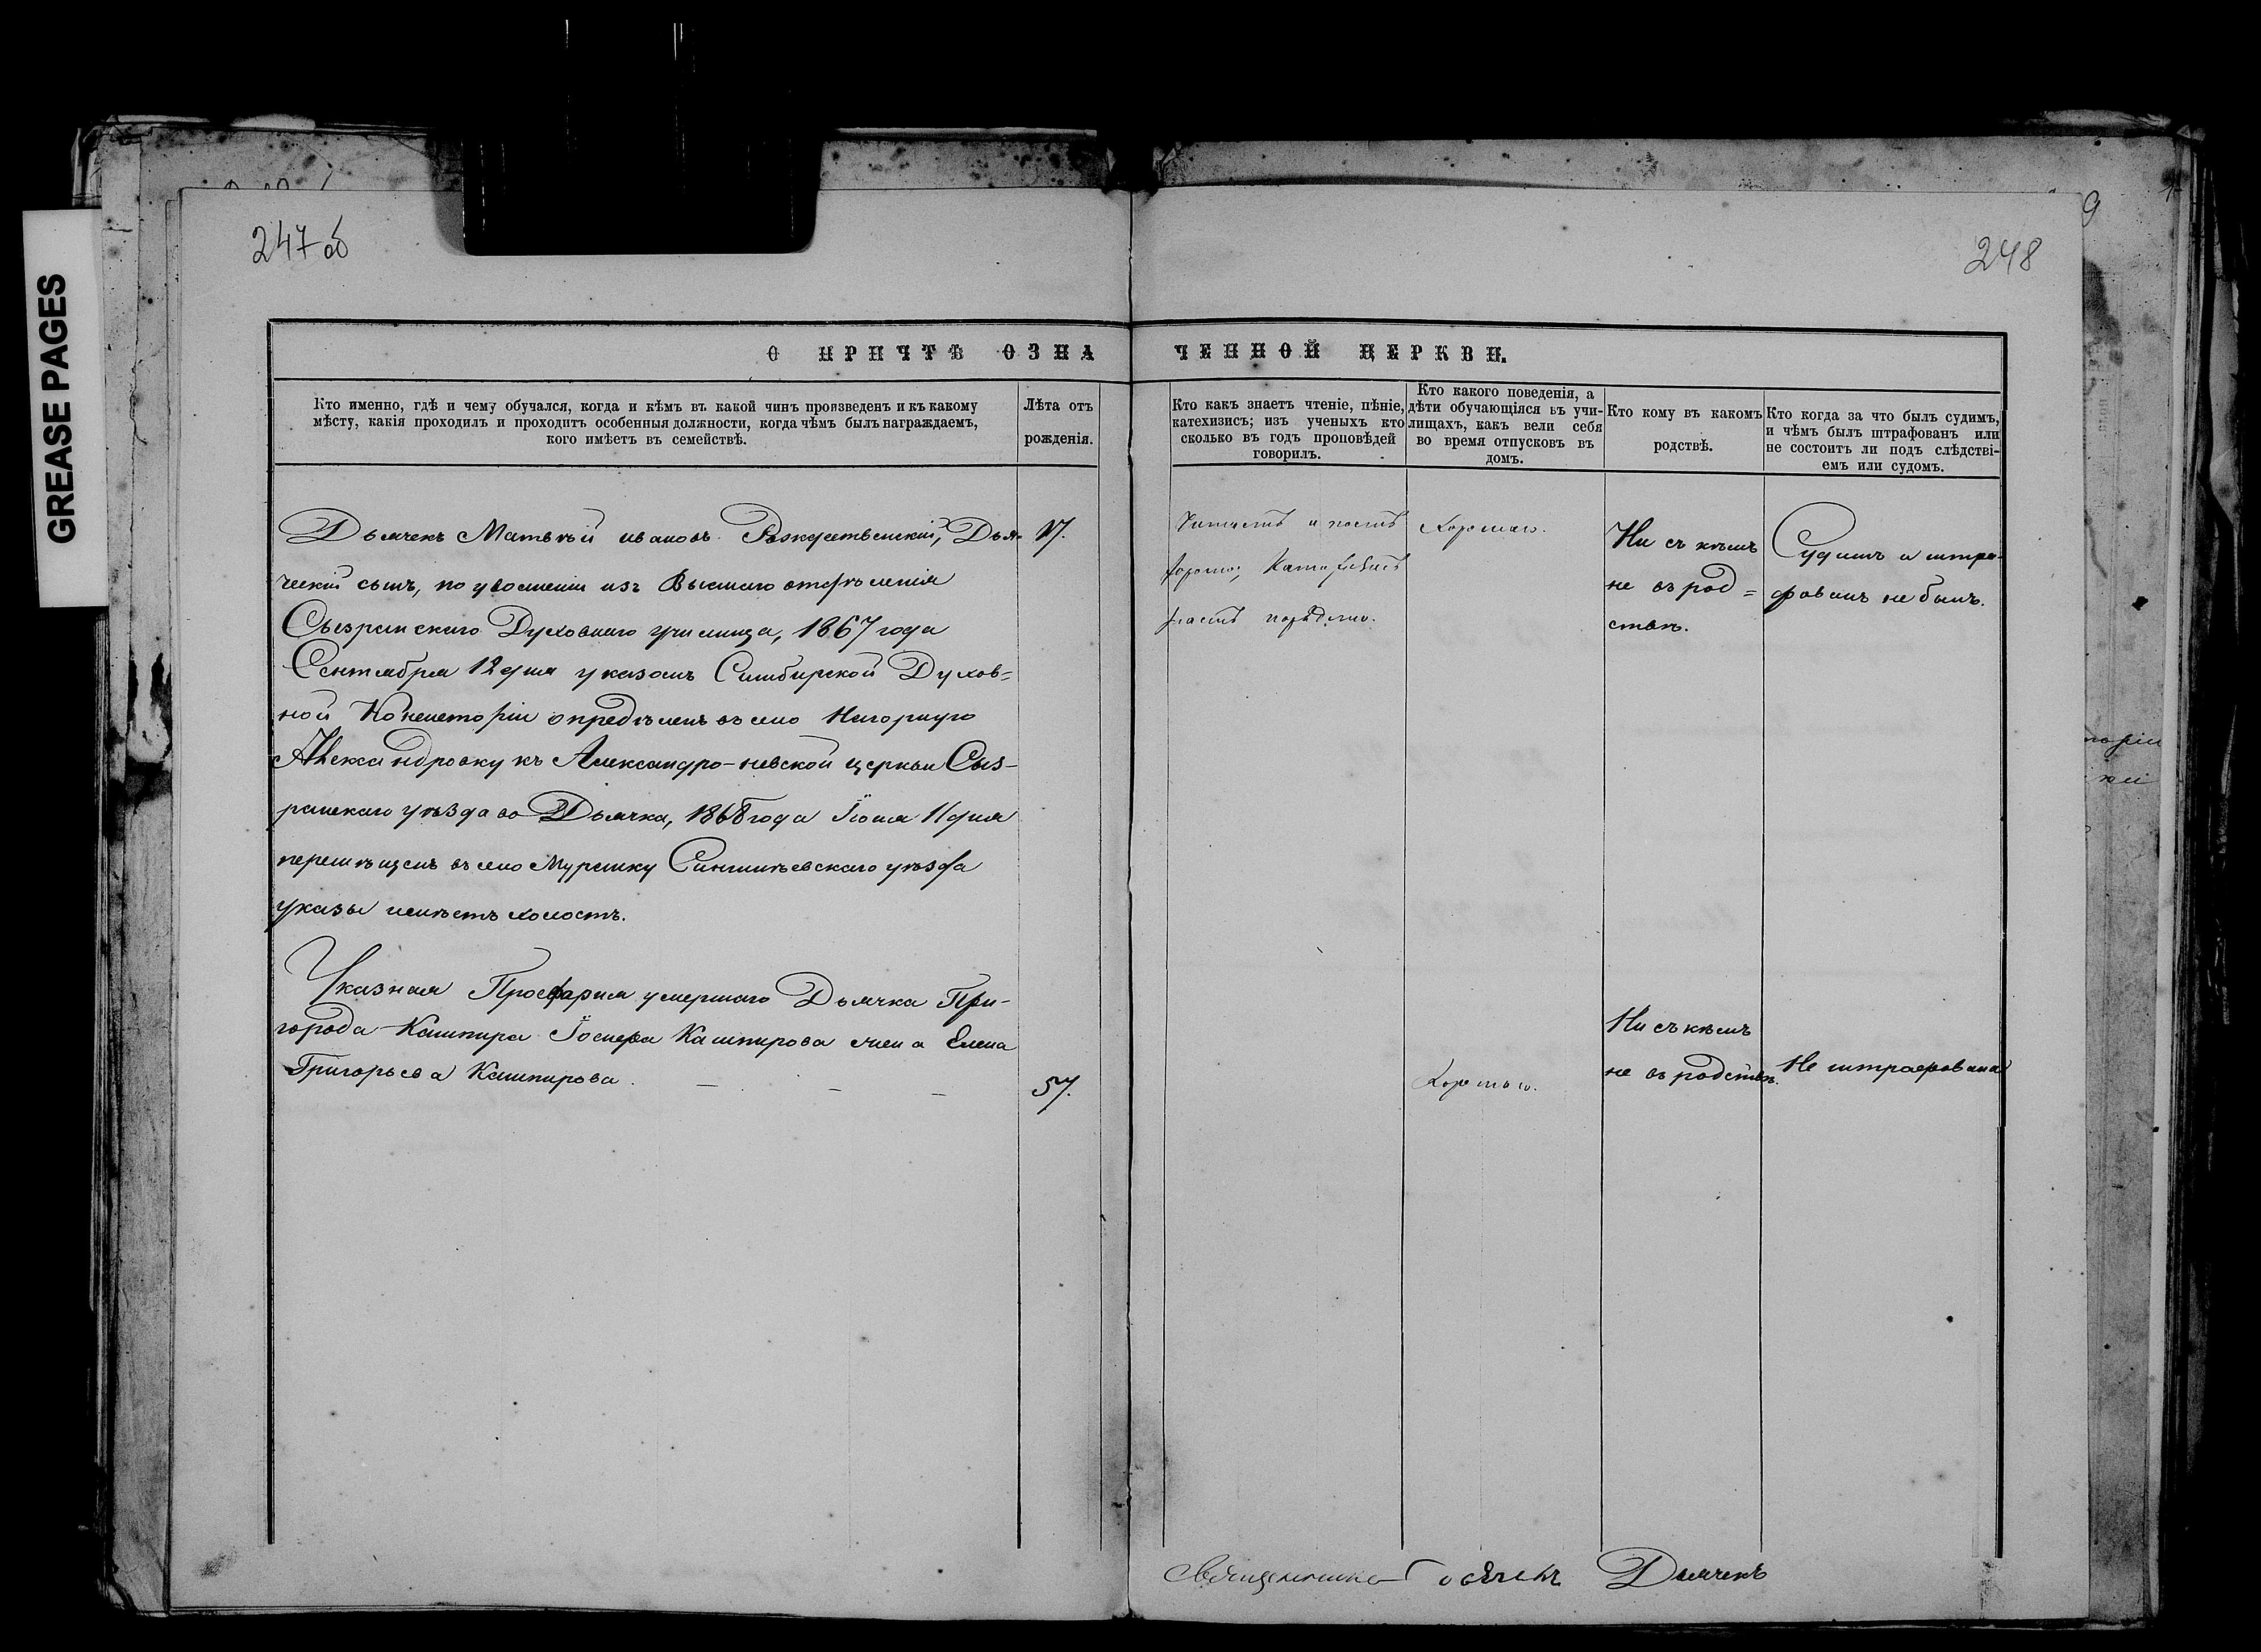 GREASE PAGES
247 об
248
О ПРИЧТѢ ОЗНАЧЕННОЙ ЦЕРКВИ.
Кто именно, гдѣ и чему обучался, когда и кѣмъ въ какой чинъ произведенъ и къ какому
мѣсту, какія проходилъ и проходитъ особенныя должности, когда чѣмъ былъ награждаемъ,
кого имѣетъ въ семействѣ.
Лѣта отъ
рожденія.
Кто какъ знаетъ чтеніе, пѣніе,
катехизисъ; изъ ученыхъ кто
сколько въ годъ проповѣдей
говорилъ.
Кто какого поведенія, а
дѣти обучающіяся въ учи-
лищахъ, какъ вели себя
во время отпусковъ въ
домъ.
Кто кому въ какомъ
родствѣ.
Кто когда за что былъ судимъ,
и чѣмъ былъ штрафованъ или
не состоитъ ли подъ слѣдстві-
емъ или судомъ.
Дьячекъ Матвѣй ивановъ Рождественскій, Дья-
ческій сынъ, по уволненіи изъ Высшаго отдѣленія
Сызранскаго Духовнаго училища, 1867 года
Сентября 12 дня указомъ Симбирской Духов=
ной Консисторіи опредѣленъ въ село Нагорную
Александровку къ Александро-невской церкви Сыз-
ранскаго уѣзда во Дьячка, 1868 года Іюня 11 дня
перемѣщенъ въ село Муранку Сингилѣевскаго уѣзда
указы имѣетъ холостъ.
17.
Читаетъ и поетъ
хорошо; Катихизисъ
знаетъ порядочно.
Хорошаго.
Ни съ кѣмъ
не въ род=
ствѣ.
Судимъ и штра-
фованъ не былъ.
Указная Просфирня умершаго Дьячка При-
города Кашпира Іосифа Кашпирова жена Елена
Григорьева Кашпирова. – – –
57.
Хорошаго.
Ни съ кѣмъ
не въ родствѣ.
Не штрафована
Священника Дьячекъ